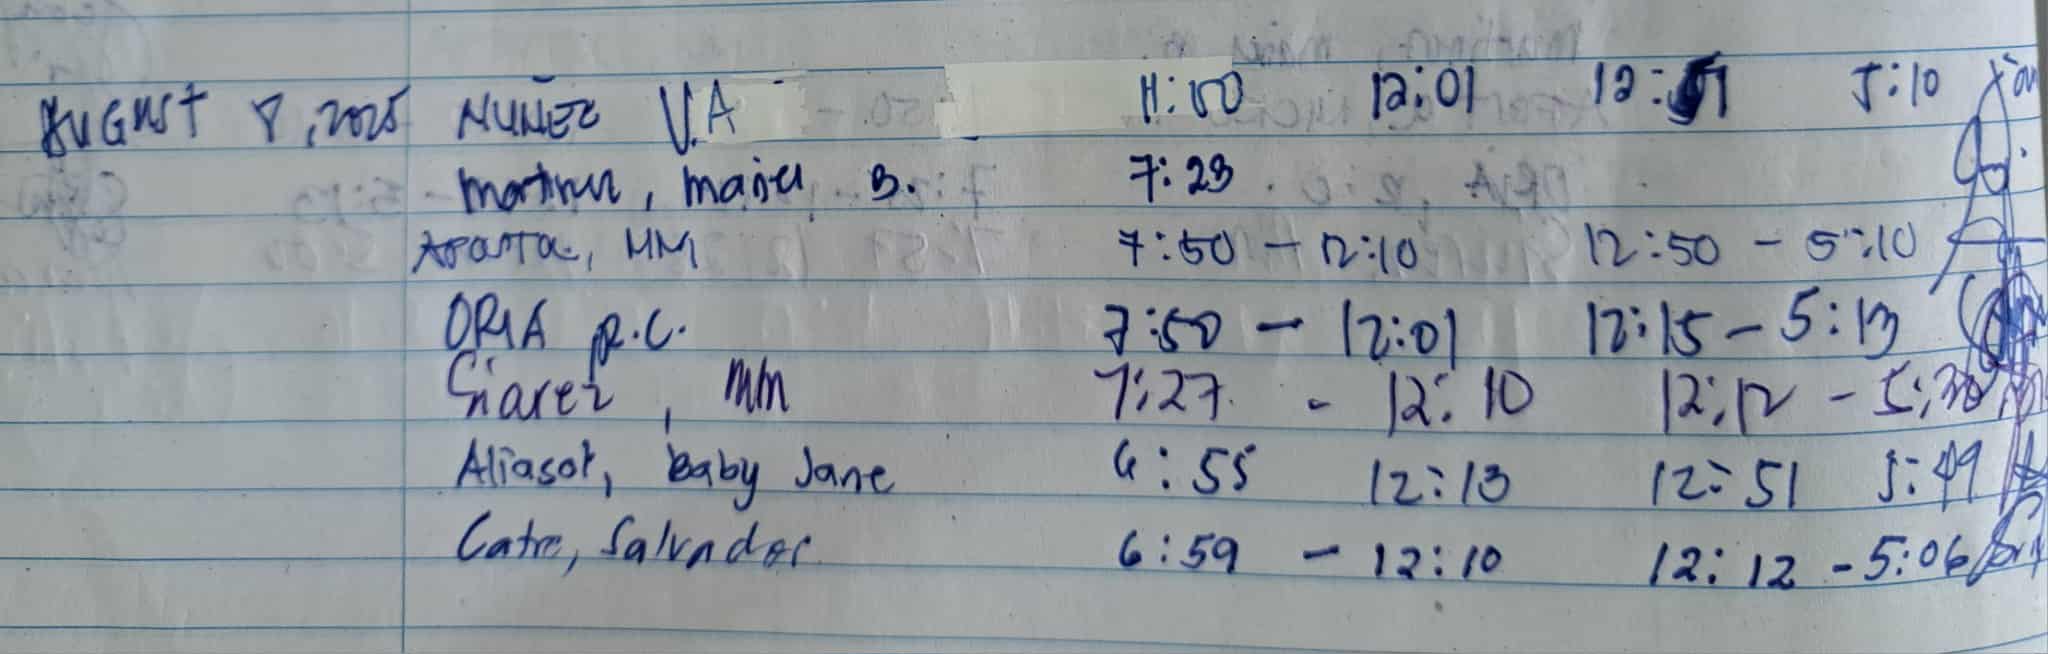 AUGUST 8, 2025 NUÑEZ V.A 11:50 12:01 12:51 5:10
Martinez, B. 7:23
MM 7:50 - 12:10 12:50 - 5:10
ORIA R.C. 7:50 - 12:01 12:15 - 5:13
Siarez, MM 7:27 - 12:10 12:12 - 5:30
Aliasot, Baby Jane 6:55 12:13 12:51 5:49
Catre, Salvador 6:59 - 12:10 12:12 - 5:06